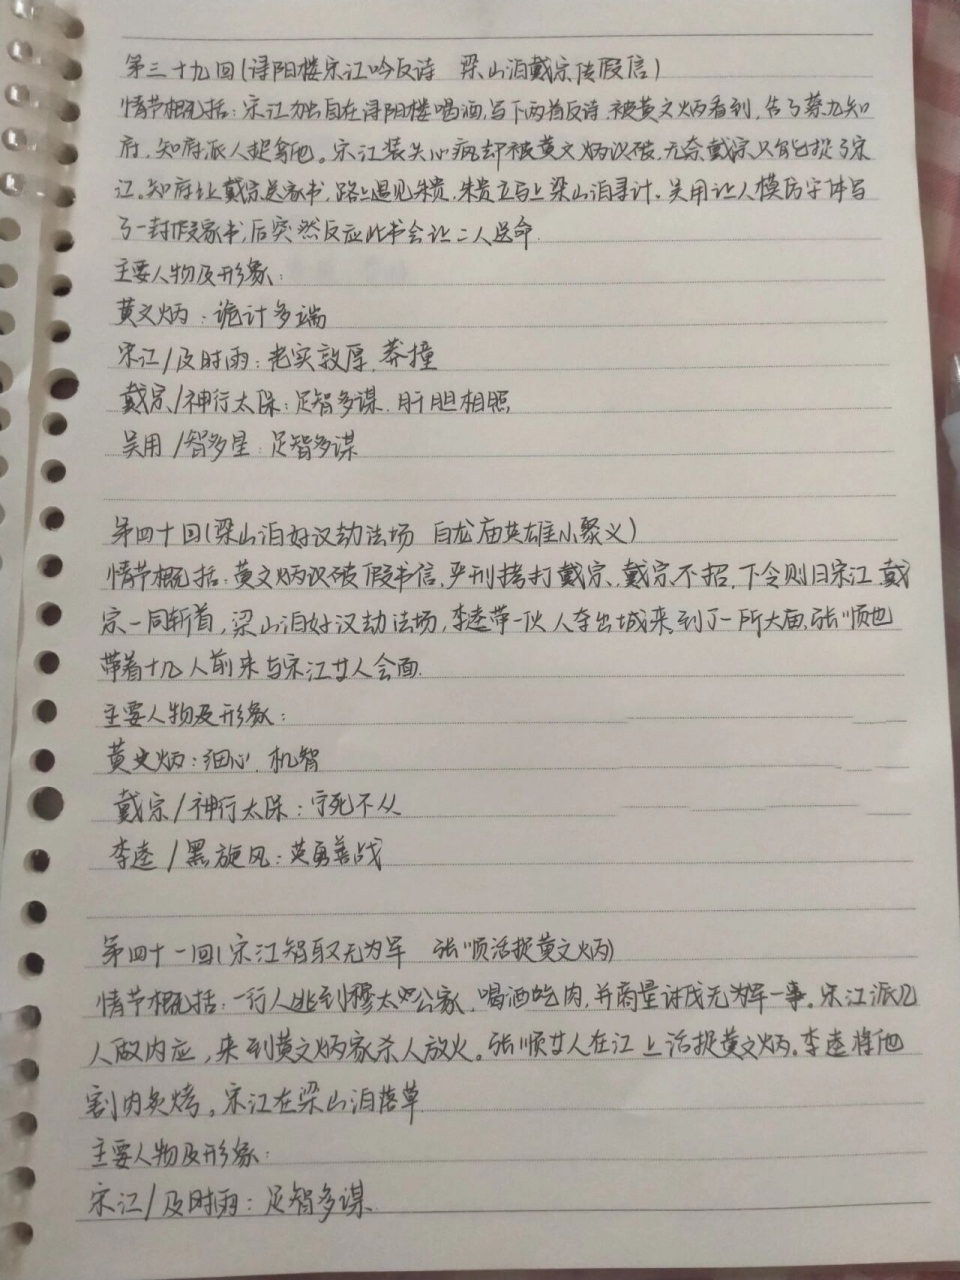 第三十九回(浔阳楼宋江吟反诗 梁山泊戴宗传假信)
情节概括:宋江独自在浔阳楼喝酒,写下两首反诗,被黄文炳看到,告了蔡九知
府,知府派人捉拿他。宋江装失心疯却被黄文炳识破,无奈戴宗只能捉了宋
江。知府让戴宗送家书,路上遇见朱贵,朱贵立马上梁山泊寻计。吴用让人模仿字体写
了一封假家书,后突然反应此书会让二人送命.
主要人物及形象:
黄文炳:诡计多端
宋江/及时雨:老实敦厚,莽撞
戴宗/神行太保:足智多谋.肝胆相照
吴用/智多星:足智多谋
第四十回(梁山泊好汉劫法场 白龙庙英雄小聚义)
情节概括:黄文炳识破假书信,严刑拷打戴宗,戴宗不招,下令则日宋江.戴
宗一同斩首,梁山泊好汉劫法场,李逵带一伙人夺出城来,到了一所大庙.张顺也
带着十几人前来与宋江廿人会面.
主要人物及形象:
黄文炳:细心.机智
戴宗/神行太保:宁死不从
李逵/黑旋风:英勇善战
第四十一回(宋江智取无为军 张顺活捉黄文炳)
情节概括:一行人逃到穆太公家,喝酒吃肉,并商量讨伐无为军一事。宋江派几
人做内应,来到黄文炳家杀人放火。张顺廿人在江上活捉黄文炳。李逵将他
割肉炙烤。宋江在梁山泊落草.
主要人物及形象:
宋江/及时雨:足智多谋.